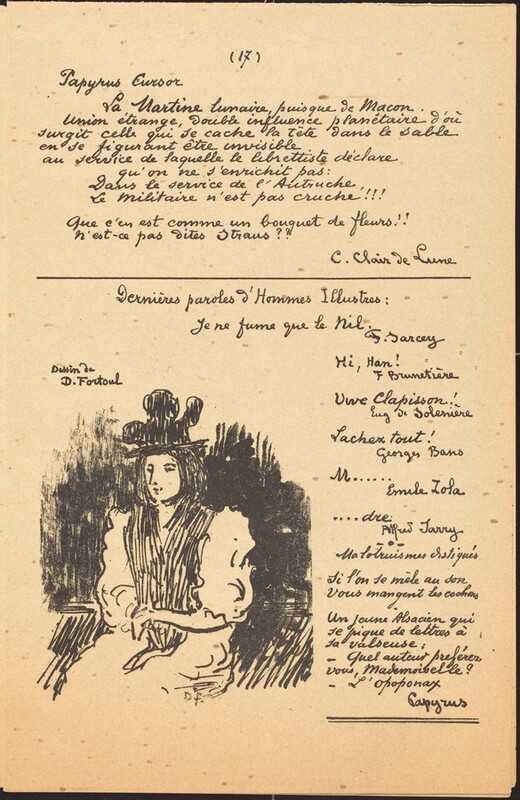 (17)
Papyrus Cursor
La Martine lunaire, puisque de Macon.
Union étrange, double influence planétaire d'où
surgit celle qui se cache la tête dans le sable
en se figurant être invisible
au service de laquelle le librettiste déclare
qu'on ne s'enrichit pas:
Dans le service de l'Autruche,
Le militaire n'est pas cruche!!!
Que c'en est comme un bouquet de fleurs!!
N'est-ce pas dites Straus??
C. Clair de Lune
Dernières paroles d'Hommes Illustres:
Je ne fume que le Nil.
F. Sarcey
Hi, Han!
F Brunetière
Vive Clapisson!
Eug de Solenière
Lachez tout!
Georges Bans
M......
Emile Zola
....dre
Alfred Jarry
Dessin de
D. Fortoul
Malotruismes distiqués
Si l'on se mêle au son
Vous mangent les cochons
Un jeune Alsacien qui
se pique de lettres à
sa valseuse:
- Quel auteur préférez
vous, Mademoiselle?
- L'Opoponax
Papyrus
D F.